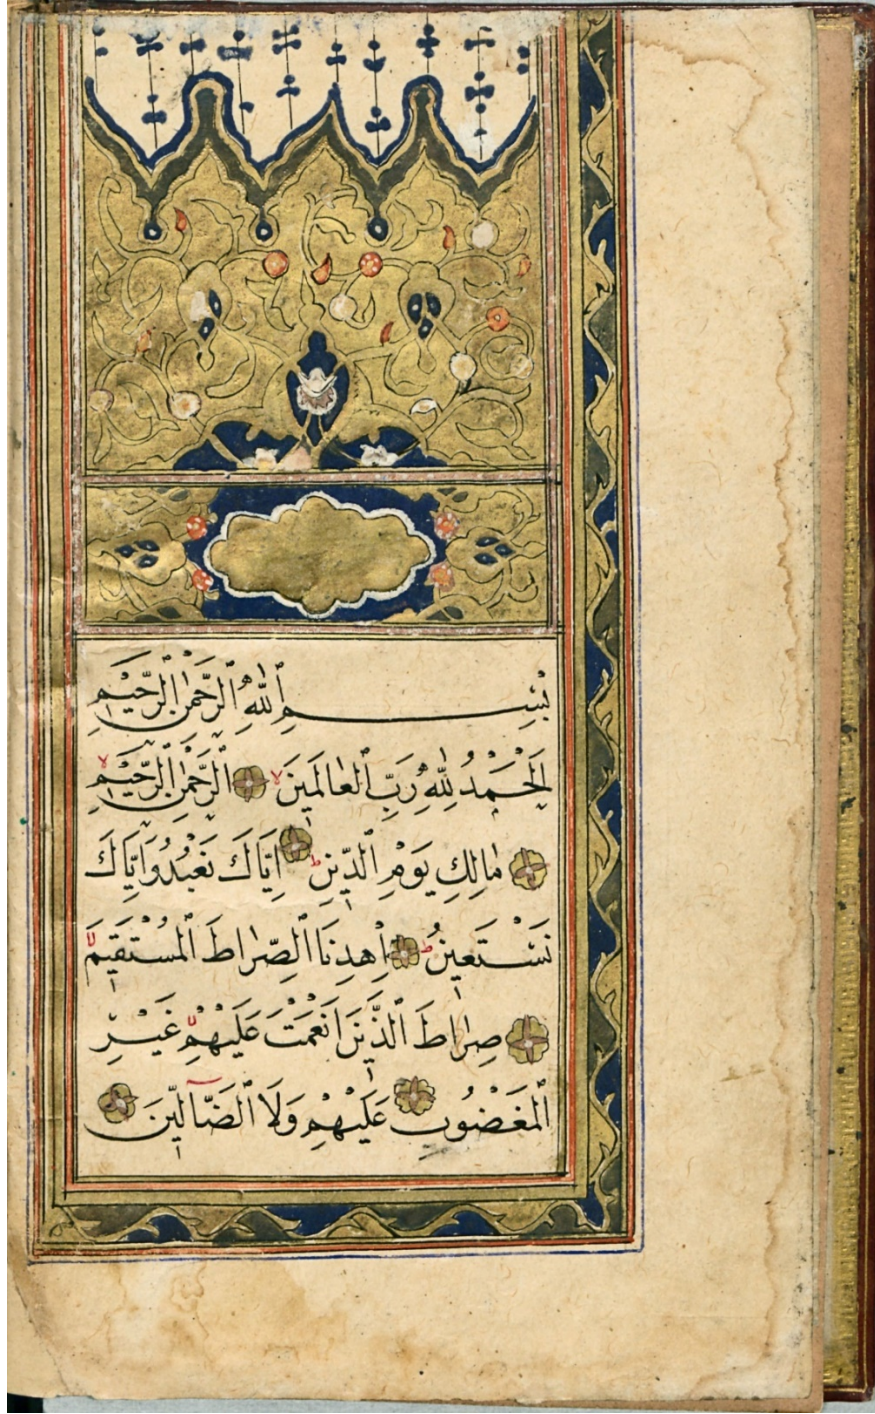 بِسْمِ ٱللّٰهِ ٱلرَّحْمٰنِ ٱلرَّحٖيمِ
اَلْحَمْدُ لِلّٰهِ رَبِّ ٱلْعَالَمٖينَ ۙ ٱلرَّحْمٰنِ ٱلرَّحٖيمِ ۙ
مَالِكِ يَوْمِ ٱلدّٖينِ ؕ اِيَّاكَ نَعْبُدُ وَاِيَّاكَ
نَسْتَعٖينُ ؕ اِهْدِنَا ٱلصِّرَاطَ ٱلْمُسْتَقٖيمَ ۙ
صِرَاطَ ٱلَّذٖينَ اَنْعَمْتَ عَلَيْهِمْ ۙ غَيْرِ
ٱلْمَغْضُوبِ عَلَيْهِمْ وَلَا ٱلضَّٓالّٖينَ